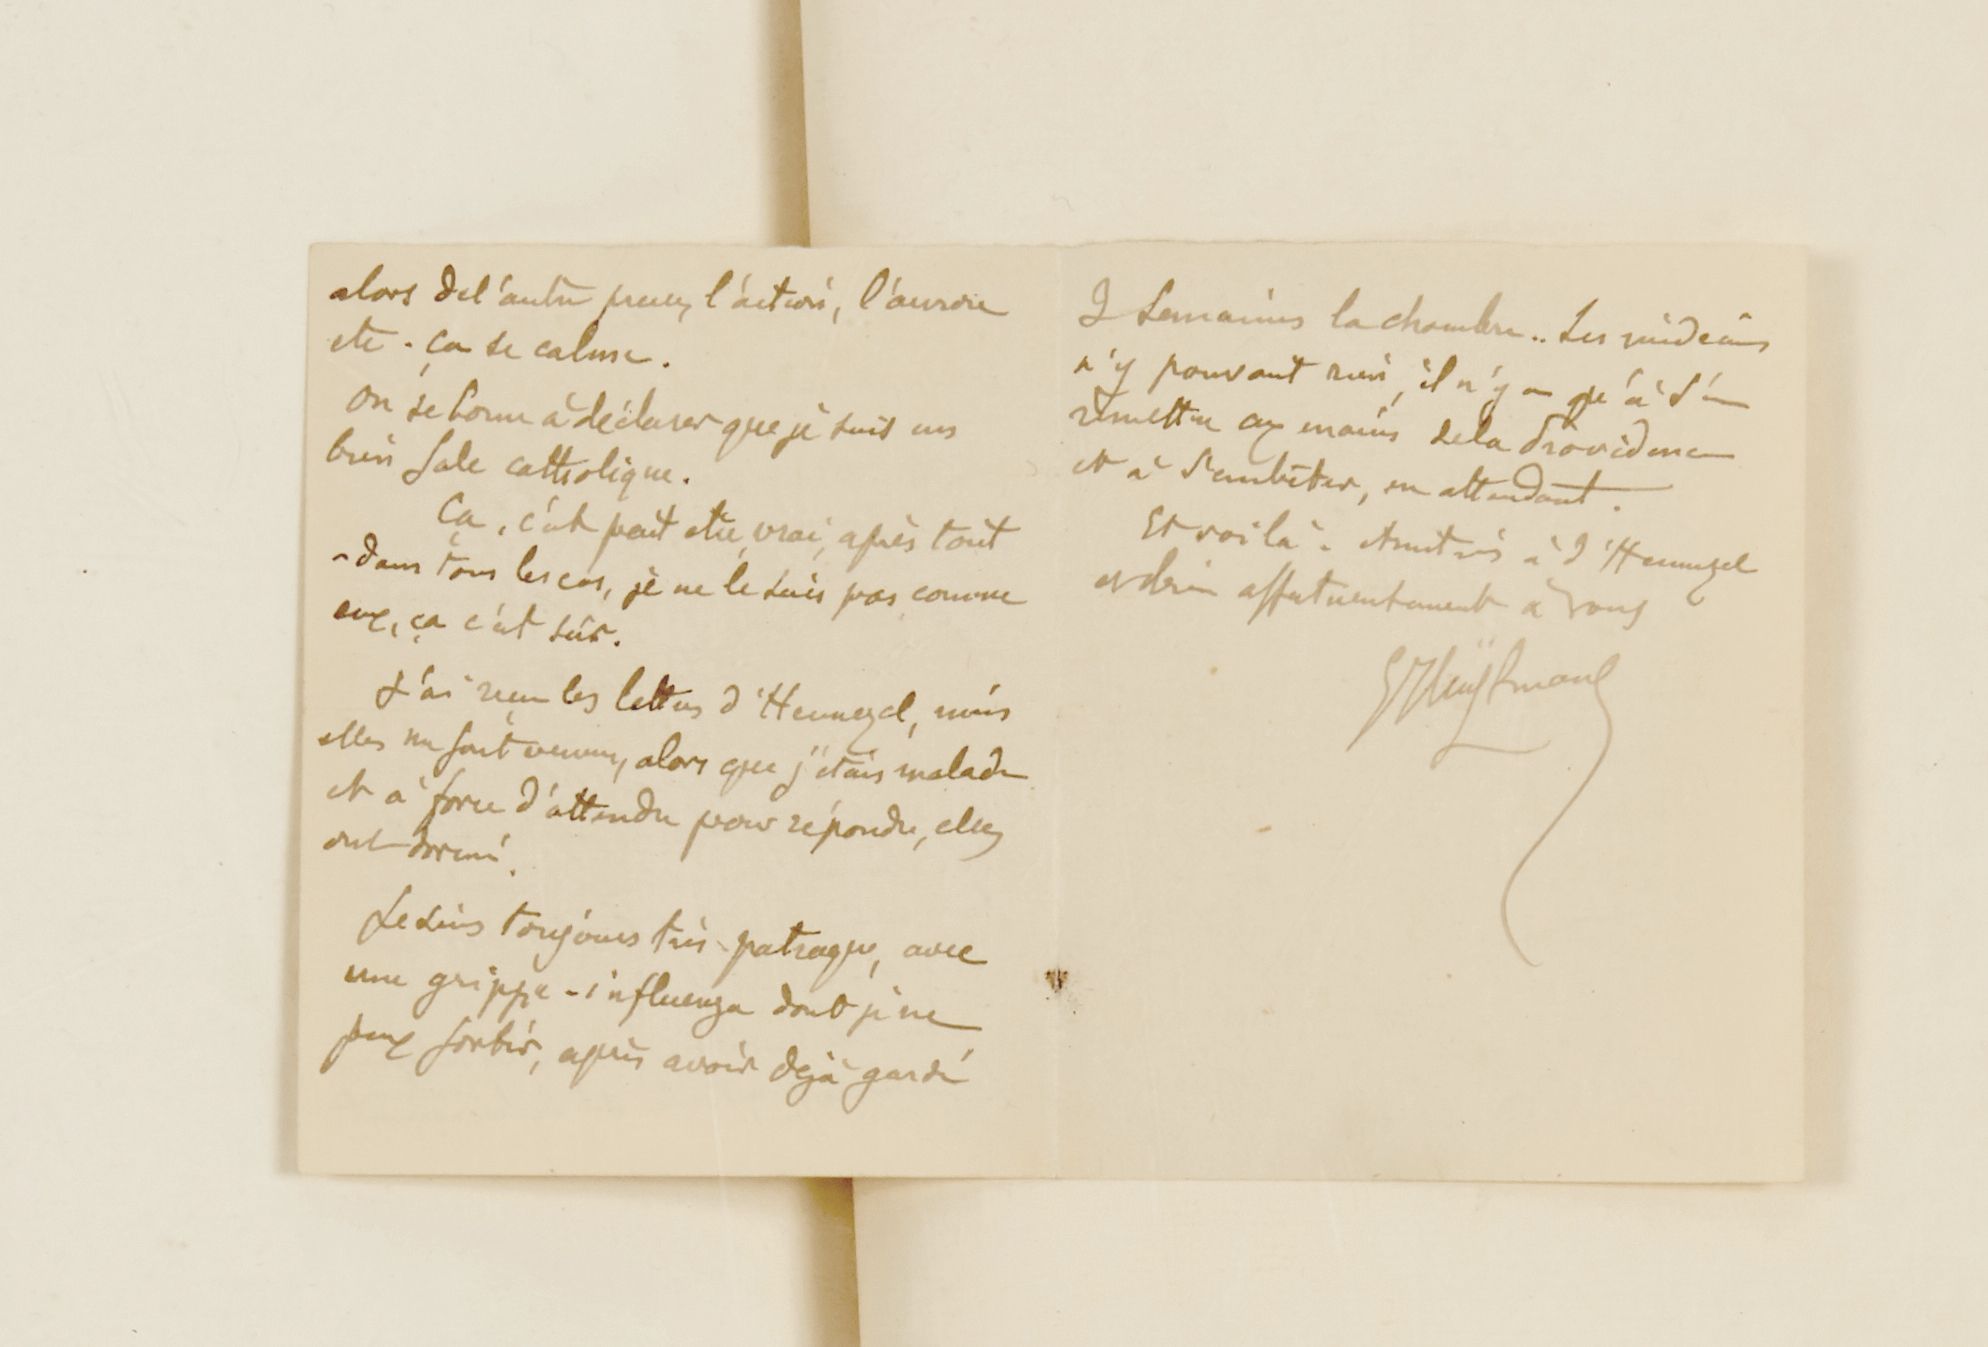 alors de l'autre presse, l'action, l'aurore
etc. ça se calme.
On se borne à déclarer que je suis un
bien sale catholique.
Ça, c'est peut etre, vrai, après tout
- dans tous les cas, je ne le suis pas comme
eux, ça c'est sûr.
J'ai reçu les lettres d'Hennezel, mais
elles me sont venues, alors que j'étais malade
et à force d'attendre pour répondre, elles
ont dormi.
Je suis toujours très patraque, avec
une grippe-influenza dont je ne
peux sortir, après avoir déjà gardé
2 semaines la chambre.. Les médecins
n'y pouvant rien, il n'y a qu'à s'en
remettre aux mains de la Providence
et à s'embêter, en attendant.
Et voilà. Amitiés à d'Hennezel
et bien affectueusement à vous
GJHuÿsmans